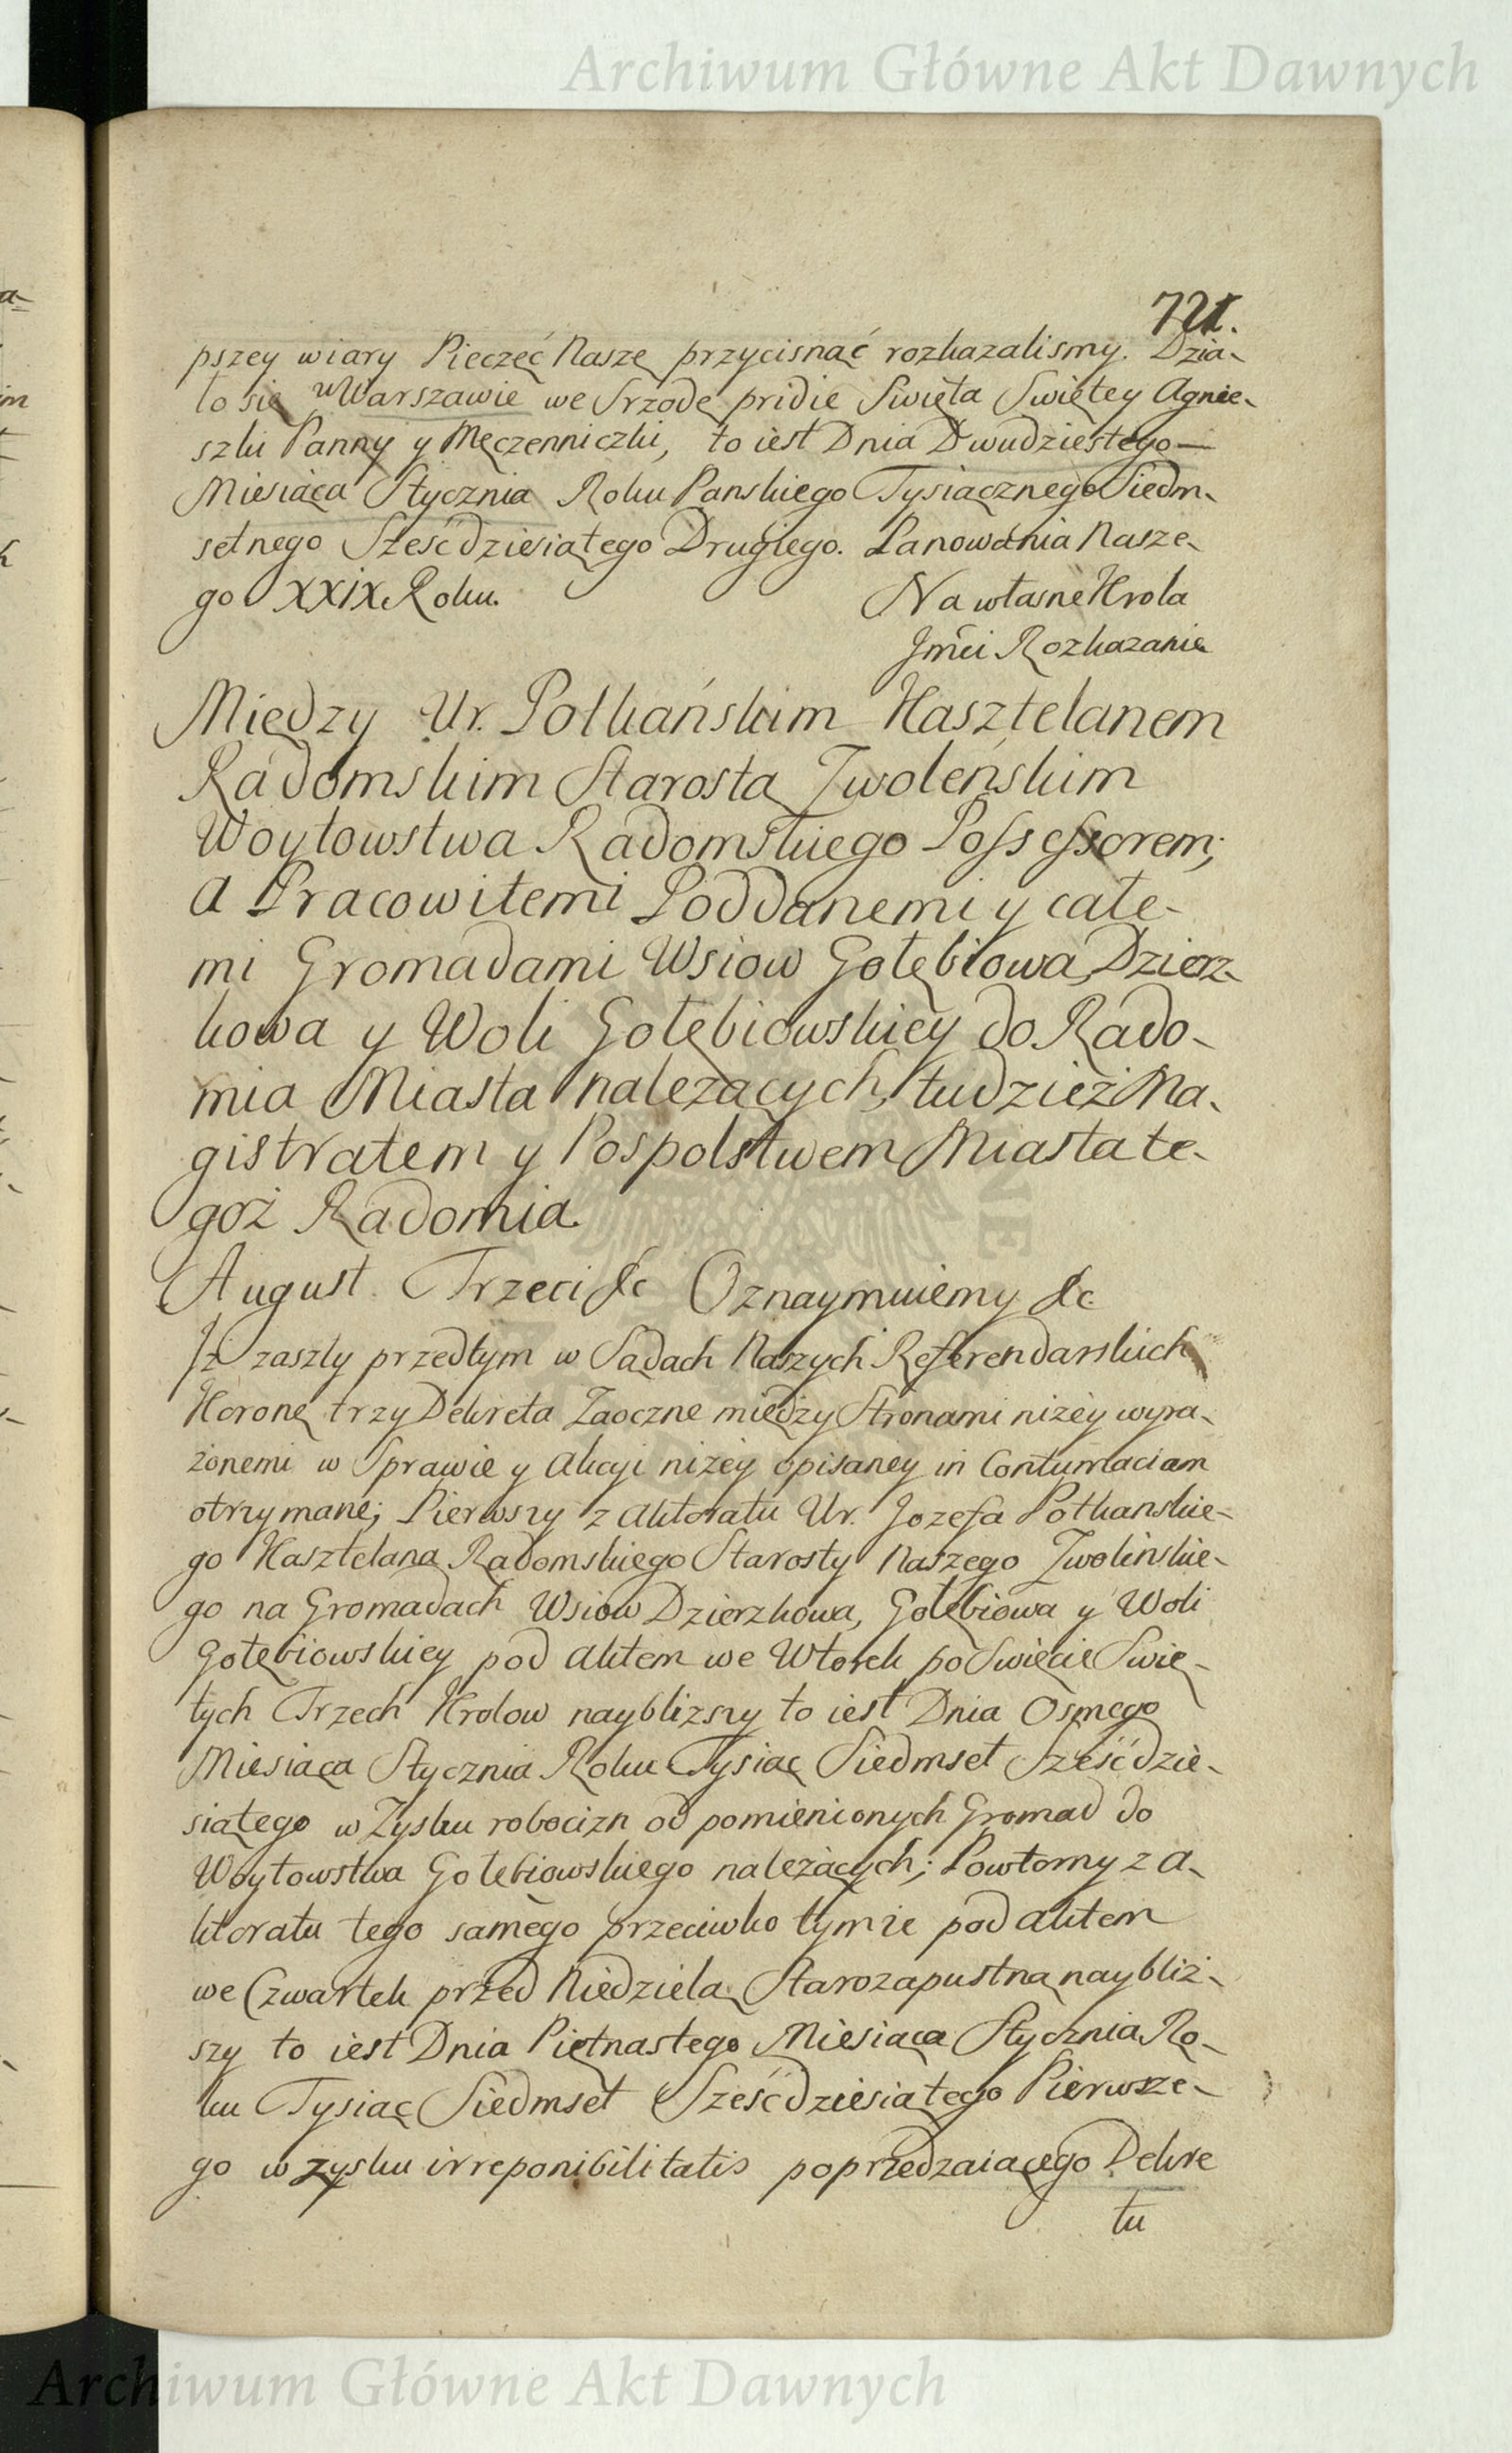 Archiwum Główne Akt Dawnych
721.
pszey wiary Pieczęć Naszę przycisnąć rozkazalismy. Dzia-
ło się w Warszawie we Srzodę pridie Swięta Swiętey Agnie-
szki Panny y Męczenniczki, to iest Dnia Dwudziestego
Miesiąca Stycznia Roku Panskiego Tysiącznego Siedm-
setnego Sześćdziesiątego Drugiego. Panowania Nasze-
go XXIX Roku.
Na własne Krola
Jmći Rozkazanie
Między Ur. Potkańskim Kasztelanem
Radomskim Starostą Zwoleńskim
Woytowstwa Radomskiego Possessorem;
a Pracowitemi Poddanemi y całe-
mi Gromadami Wsiow Gołębiowa, Dzierz-
kowa y Woli Gołębiowskiey do Rado-
mia Miasta należących, tudzież Ma-
gistratem y Pospolstwem Miasta te-
goż Radomia.
August Trzeci &c Oznaymuiemy &c
Iż zaszły przedtym w Sądach Naszych Referendarskich
Koronę trzy Dekreta Zaoczne między Stronami niżey wyra-
żonemi w Sprawie y Akcyi niżey opisaney in Contumaciam
otrzymane; Pierwszy z Aktoratu Ur. Jozefa Potkanskie-
go Kasztelana Radomskiego Starosty Naszego Zwolinskie-
go na Gromadach Wsiow Dzierzkowa, Gołębiowa y Woli
Gołębiowskiey pod Aktem we Wtorek po Swięcie Swię-
tych Trzech Krolow nayblizszy to iest Dnia Osmego
Miesiąca Stycznia Roku Tysiąc Siedmset Sześćdzie-
siątego w Zysku robocizn od pomienionych Gromad do
Woytowstwa Gołębiowskiego należących; Powtorny z A-
ktoratu tego samego przeciwko tymże pod Aktem
we Czwartek przed Niedzielą Starozapustną naybliż-
szy to iest Dnia Piętnastego Miesiąca Stycznia Ro-
ku Tysiąc Siedmset Sześćdziesiątego Pierwsze-
go w zysku irreponibilitatis poprzedzaiącego Dekre
tu
Archiwum Główne Akt Dawnych